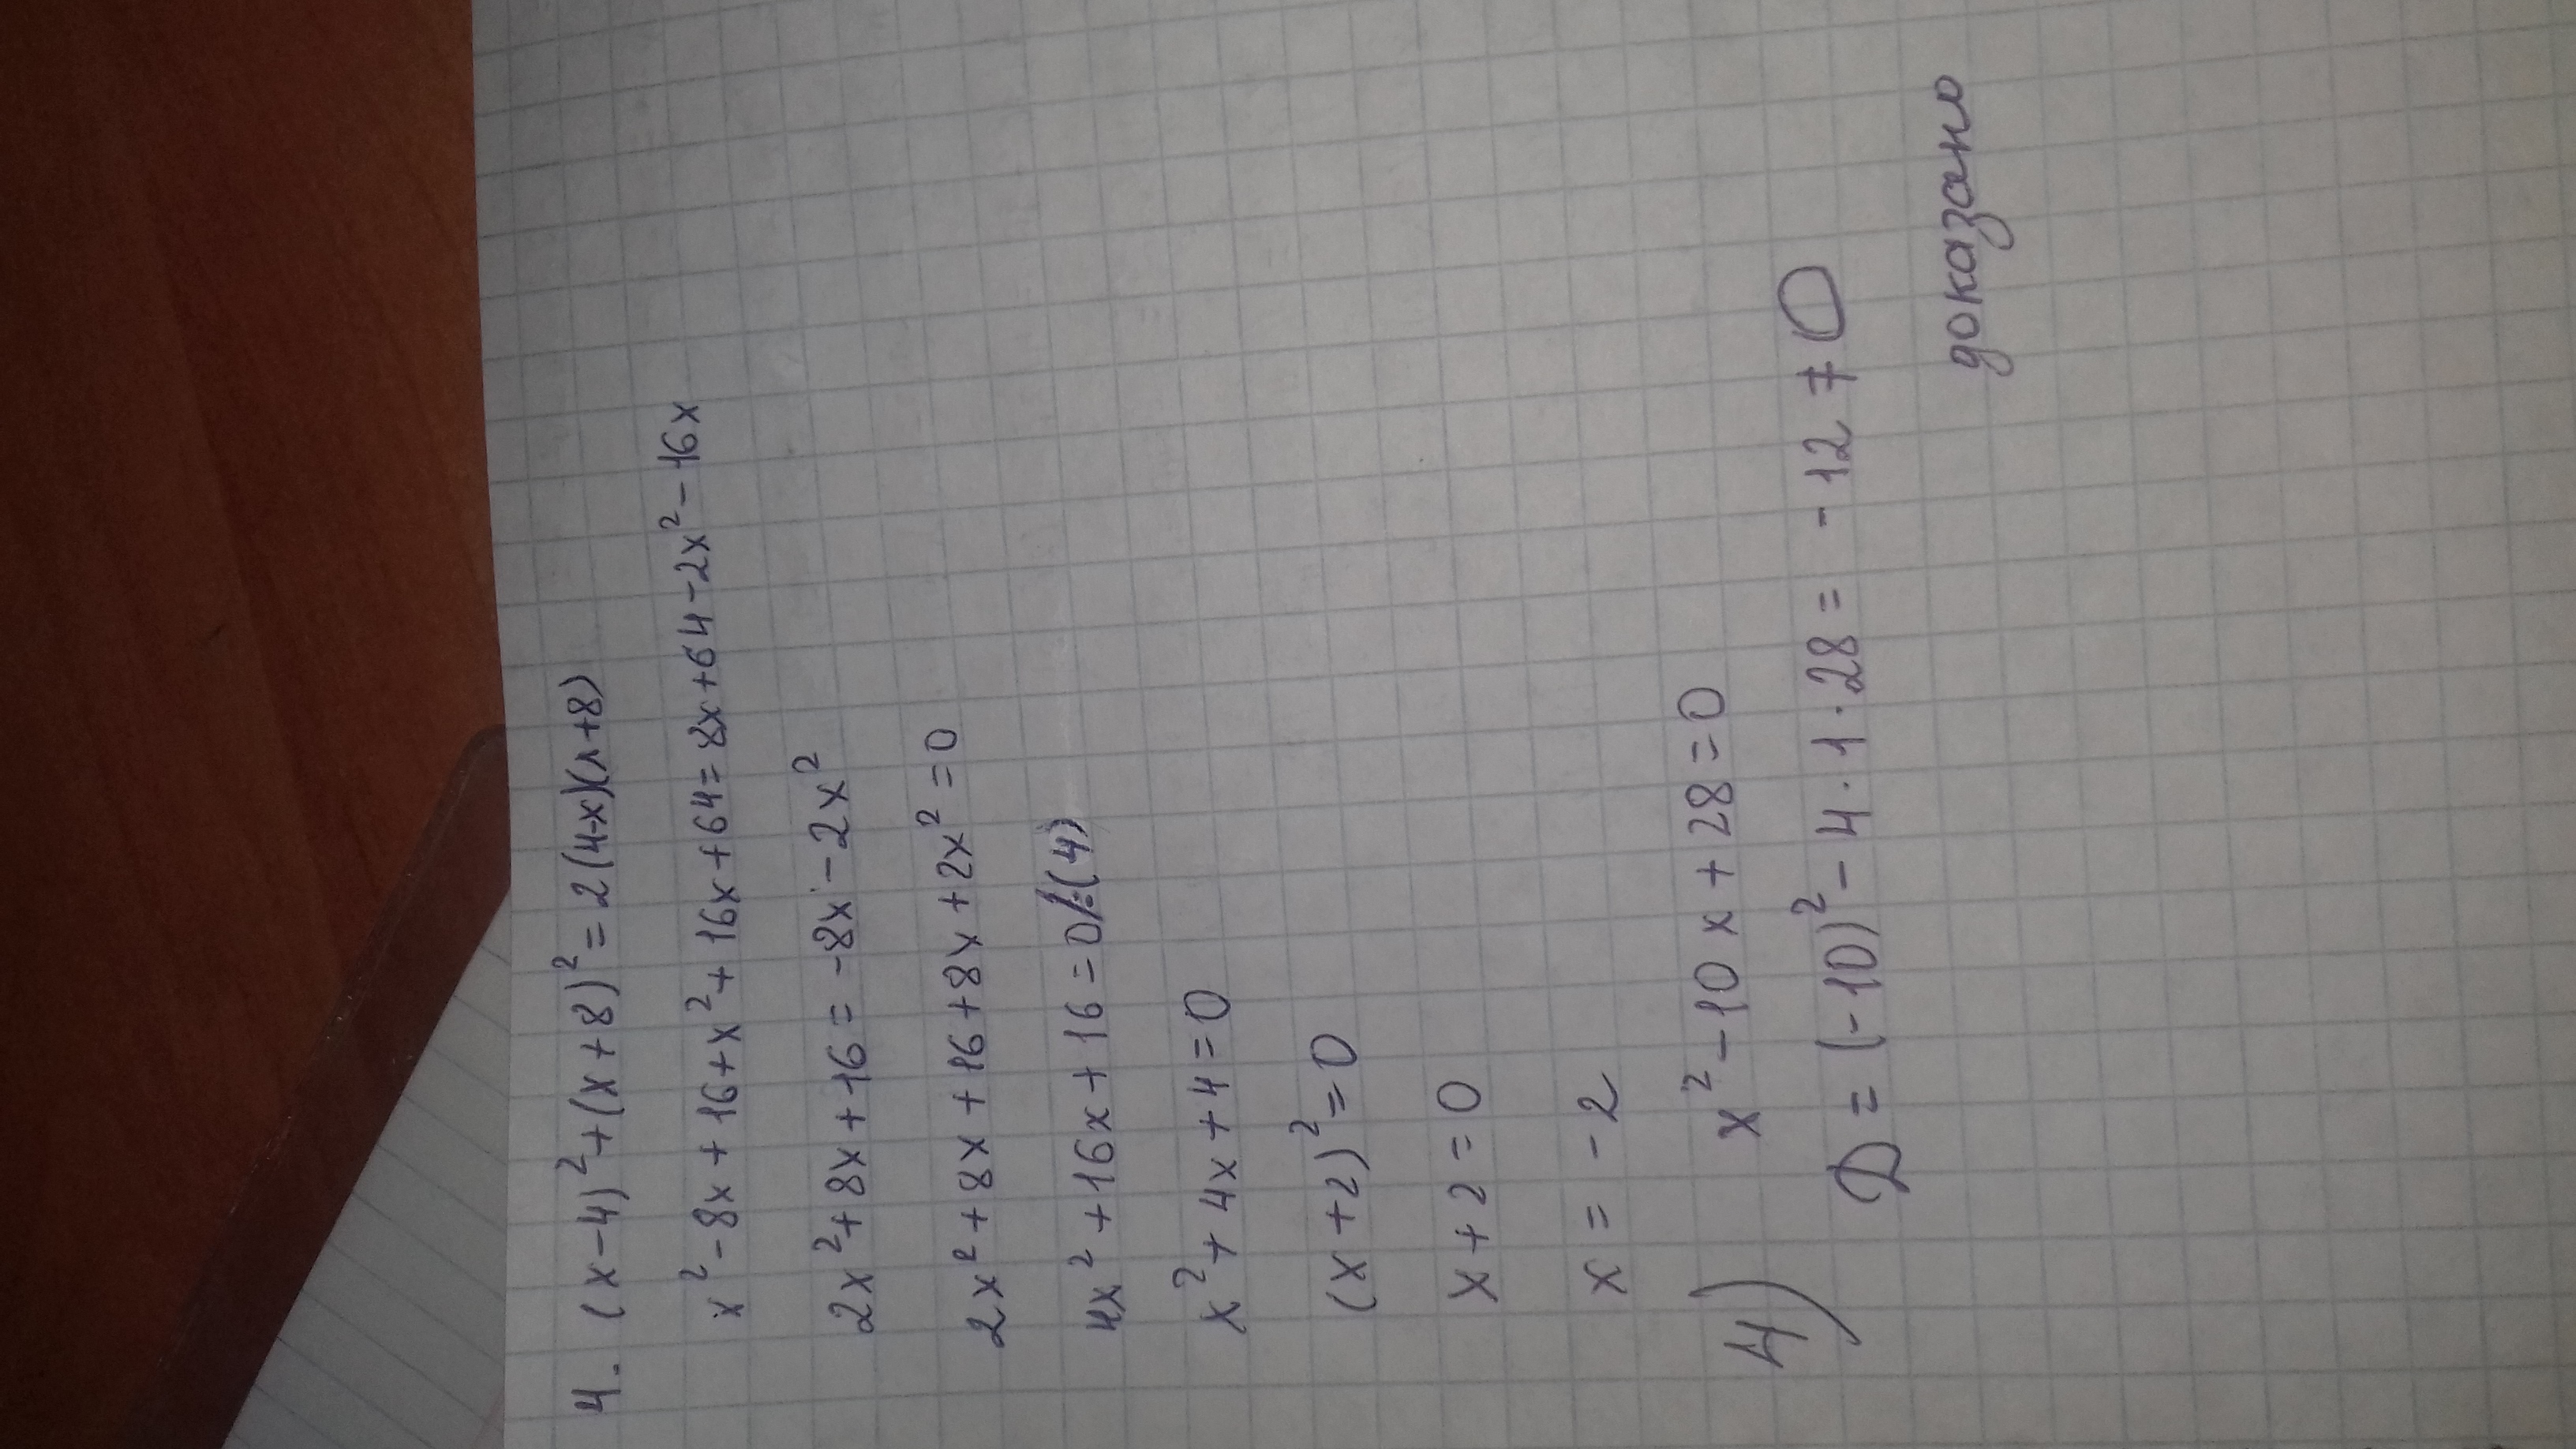 4. (x-4)²+(x+8)²=2(4-x)(x+8)
x²-8x+16+x²+16x+64=8x+64-2x²-16x
2x²+8x+16=-8x-2x²
2x²+8x+16+8x+2x²=0
4x²+16x+16=0/:(4)
x²+4x+4=0
(x+2)²=0
x+2=0
x=-2
4) x²-10x+28=0
D=(-10)²-4·1·28=-12≠0
доказано